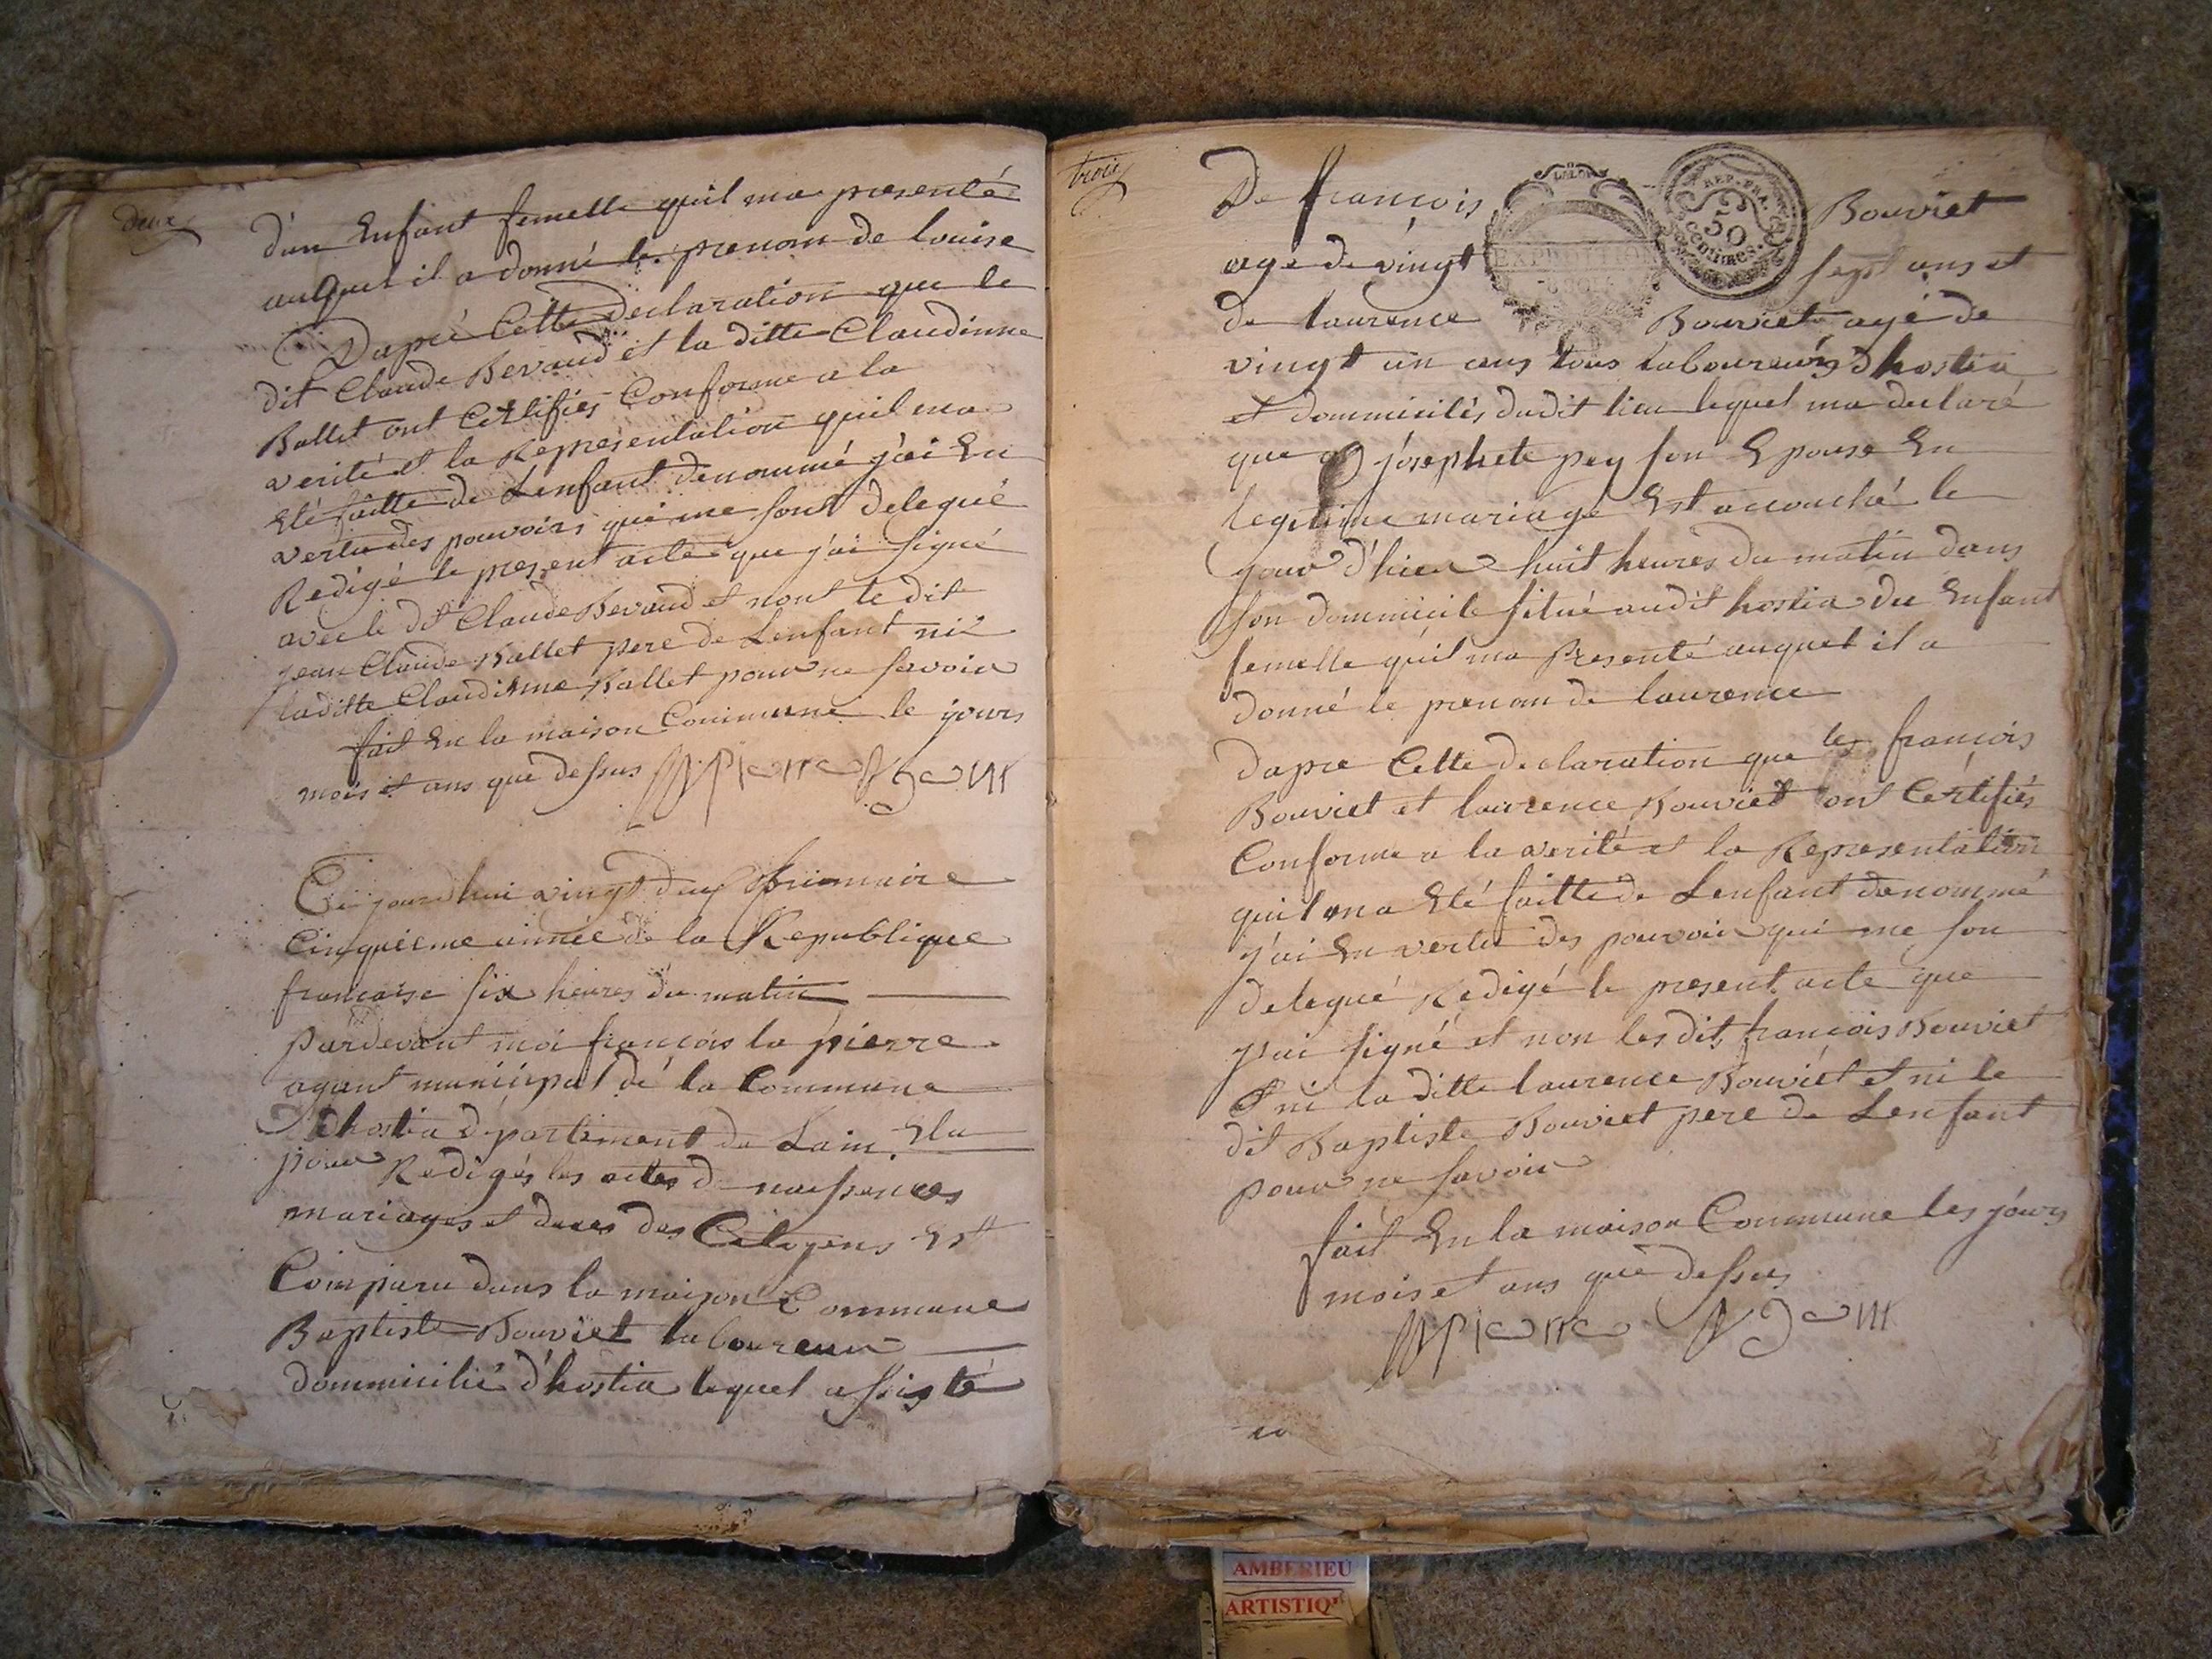 deux
d'un Enfant femelle quil ma presenté
auquel il a donné le prenom de louise
Dapré Cette declaration que le
dit Claude Bevaud et la ditte Claudinne
Ballet ont Certifiés Conforme a la
verité et la Representation quil ma
Eté faitte de Lenfant denommé j'ai En
vertu des pouvoirs qui me sont delegué
Redigé le present acte que j'ai signé
avec le dt Claude Bevaud et nont le dit
jean Claude Ballet pere de Lenfant ni
laditte Claudinne Ballet pour ne savoir
fait En la maison Commune le jours
mois et ans que dessus
Ce jourdhui vingt deux frimaire
Cinquieme année de la Republique
francaise six heures du matin
pardevant moi francois la pierre
agant municipal de la Commune
dhostia departement de Lain Elu
pour Redigés les actes de naissences
mariages et deces des Citoyens Est
Comparu dans la maison Commune
Baptiste Bouviet laboureur
dommicilié d'hostia lequel assisté
trois
De francois Bouviet
agé de vingt sept ans et
de laurence Bouviet agé de
vingt un ans tous laboureurs dhostia
et dommiciliés dudit lieu lequel ma declaré
que josephete pey son Epouse En
legitime mariage Est accouché le
jour d'hier huit heures du matin dans
son dommicile situé audit hostia du Enfant
femelle quil ma Presenté auquel il a
donné le prenom de laurence
dapre Cette declaration que les francois
Bouviet et laurence Bouviet ont Certifiés
Conforme a la verité et la Representation
quil ma Eté faitte de Lenfant denommé
j'ai En vertu des pouvoir qui me son
delegué Redigé le present acte que
j'ai signé et non les dit francois Bouviet
et ni la ditte laurence Bouviet et ni le
dit Baptiste Bouviet pere de Lenfant
pour ne savoir
fait En la maison Commune les jours
mois et ans que dessus
REP. FRA.
50
CENTIMES.
AMBERIEU
ARTISTIQ